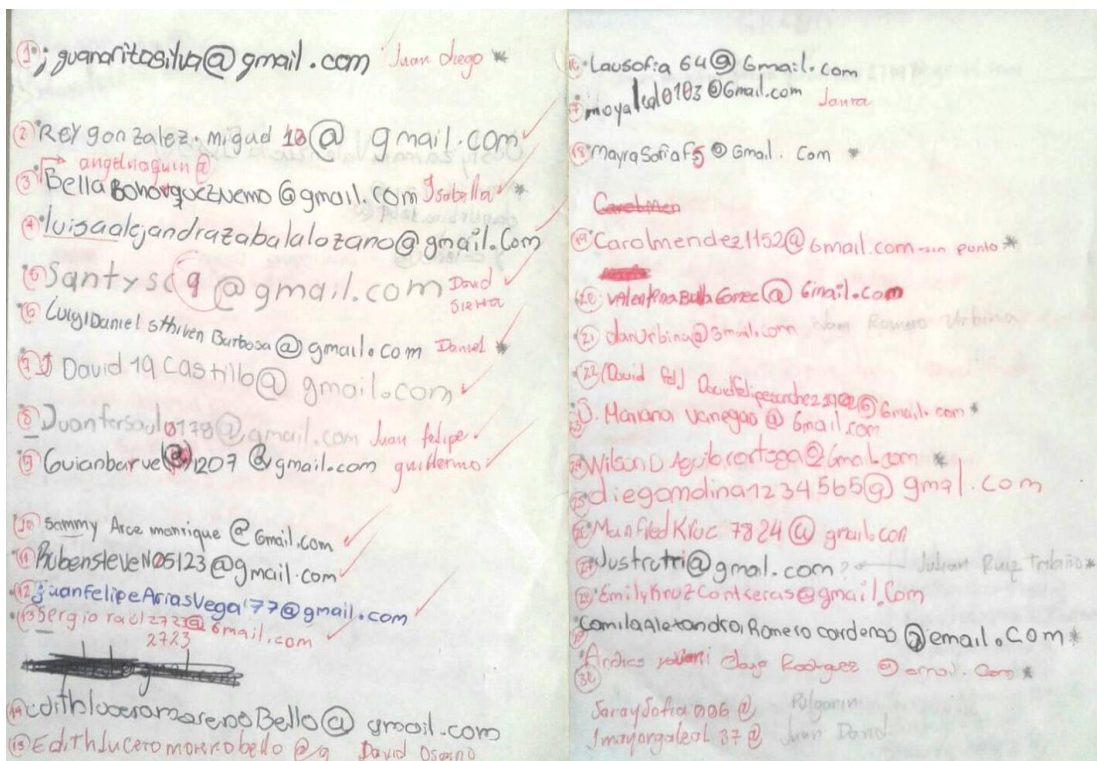 1 jguanaritosilva@gmail.com Juan diego *
2 Reygonzalez.miguel18@gmail.com
angelnaguin@
3 BellaBohorquezNemo@gmail.com Isabella *
4 luisaalejandrazabalalozano@gmail.Com
5 Santysc9@gmail.com David Sierra
6 LuigiDaniel sthiven Barbosa@gmail.Com Daniel *
7 David19Castillo@gmail.com
8 Juanfersaul0178@gmail.com Juan felipe.
9 Guianbarve@1207@gmail.com guillermo
10 Sammy Arce manrique@Gmail.com
11 RubensteveN05123@gmail.com
12 juanFelipeAriasVega'77@gmail.com
13 Sergioraul2723@Gmail.com
2723
14 edithluceromorenoBello@gmail.com
15 EdithLuceromorenobello@g David Osorno
16 Lausofia64@Gmail.com
17 moyalcal0103@Gmail.com Laura
18 MayraSofiaF5@Gmail.Com *
CarolMen
19 Carolmendez1152@Gmail.com - sin punto *
20 valentinaBullaGomez@Gmail.com
21 danurbina@Gmail.com Romero Urbina
22 (David fel) Davidfelipesanchez2902@Gmail.com *
D. Mariana vanegas@Gmail.com
24 WilsonDAguilarortega@Gmail.com *
25 diegomolina1234565@gmal.com
26 ManfredKruc7824@gmailcon
27 Justrutri@gmal.com? Julian Ruiz *
28 EmilyKruzContreras@gmail.Com
29 CamilaAlexandraRomero cardenas@email.COM *
Andres Clavijo Rodriguez @email.Com *
30
SaraySofia006@ Pulgarin
Jmayorgaleal37@ Juan David